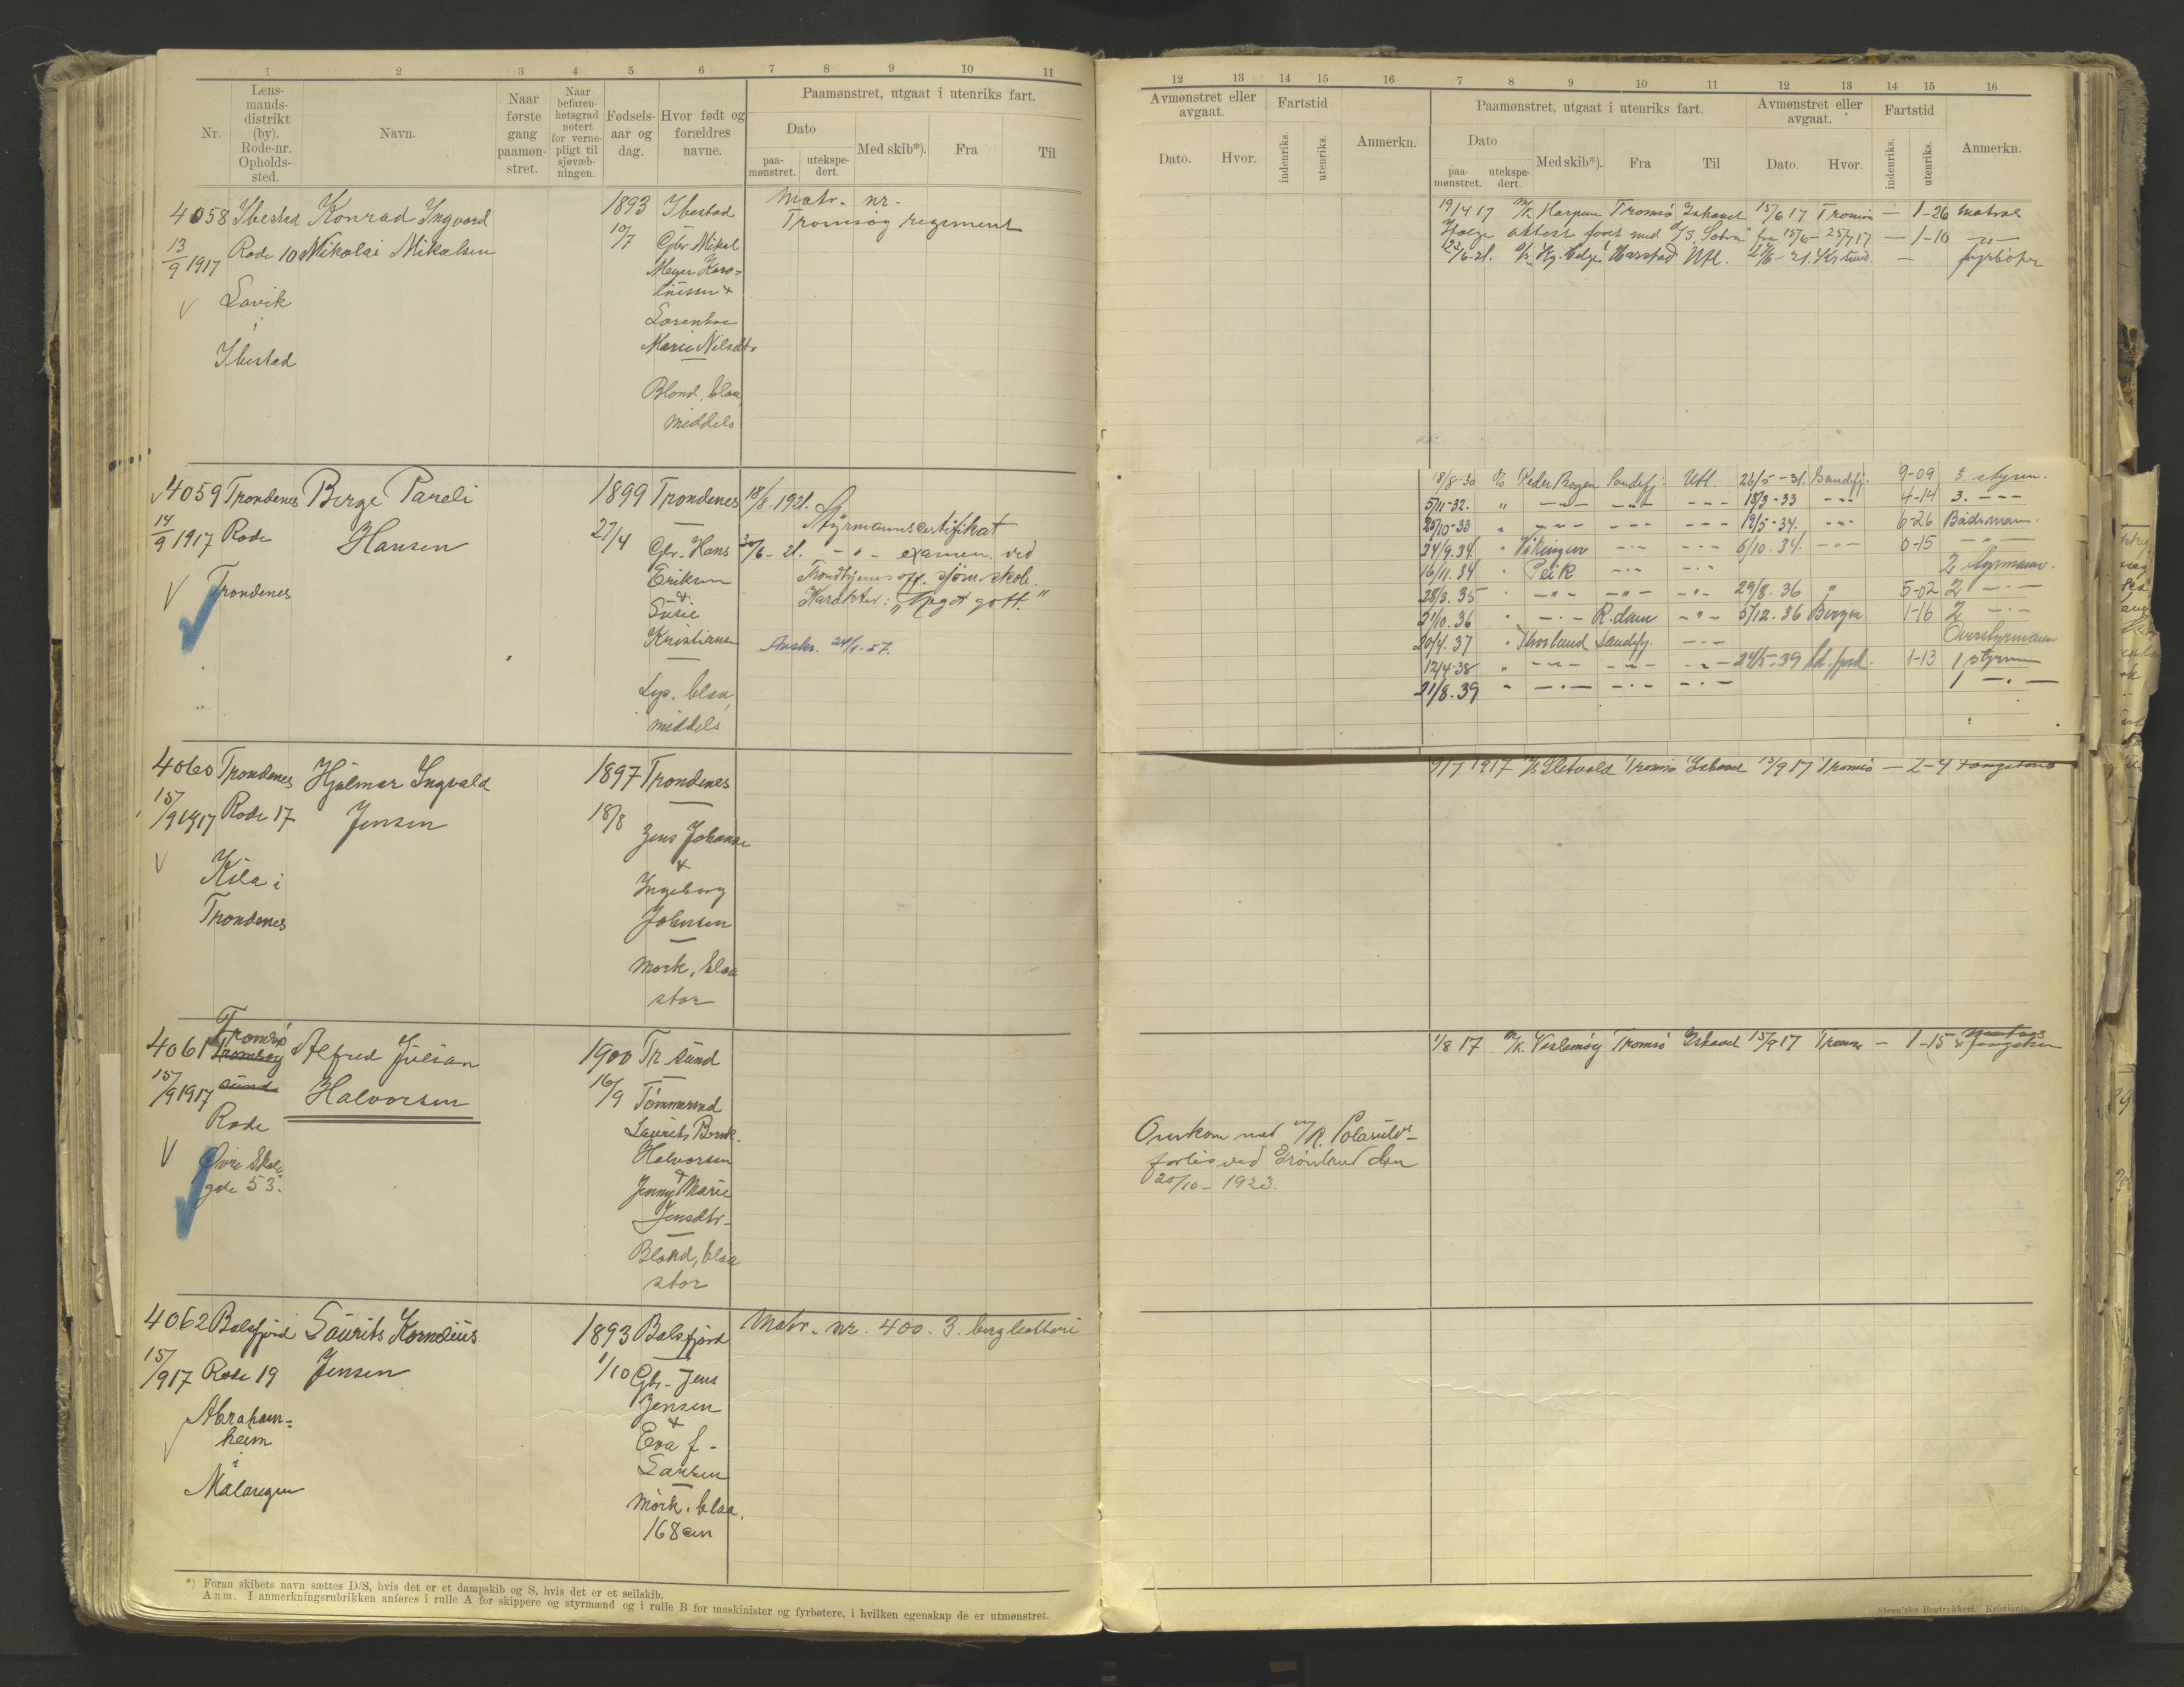 1 2 3 4 5 6 7 8 9 10 11
Nr.
Lens-
mands-
distrikt
(by).
Rode-nr.
Opholds-
sted.
Navn.
Naar
første
gang
paamøn-
stret.
Naar
befaren-
hetsgrad
notert
for verne-
pligt til
sjøvæb-
ningen.
Fødsels-
aar og
dag.
Hvor født og
forældres
navne.
Paamønstret, utgaat i utenriks fart.
Dato
paa-
mønstret.
utekspe-
dert.
Med skib*).
Fra
Til
4058 Ibestad Konrad Ingvard 1893 Ibestad Matr. nr.
13/9 1917 Rode 10 Nikolai Mikalsen 10/7 Gbr. Mikal Tromsøg regiment
Meyer Karo-
liussen +
Lavik
i
Ibestad
Lorentse
Marie Nilsdtr
Blond, blaa,
middels
4059 Trondenes Berge Pareli 1899 Trondenes 18/8. 1921. Styrmannscertifikat
14/9 1917 Rode Hansen 27/4 Gbr. Hans 30/6-21. -"- examen ved
Eriksen Trondhjems off. sjøm. skole.
Trondenes & Karakter: "Meget godt."
Susie
Kristiansen
24/1-57.
Lys, blaa,
middels
4060 Trondenes Hjalmar Ingvald 1897 Trondenes
15/9 1917 Rode 17 Jensen 18/8 Jens Johansen
&
Kila i
Trondenes
Ingeborg
Johnsen
Mørk, blaa
stor
4061 Tromsø Alfred Julian 1900 Tr. sund
Tromsøy
sund
15/9 1917 Halvorsen 16/9 Tømmermd
Rode Laurits Bernh.
Halvorsen
Øvre Skole
gate 53.
&
Jenny Marie
Jensdtr.
Blond, blaa
stor
4062 Balsfjord Laurits Kornelius 1893 Balsfjord Matr. nr. 400. 3. bergbatteri
15/9 17 Rode 19 Jensen 1/10 Gbr. Jens
Jensen
&
Abraham-
heim
i
Malangen
Eva f.
Larsen
Mørk, blaa,
168 cm
*) Foran skibets navn sættes D/S, hvis det er et dampskib og S, hvis det er et seilskib.
Anm. I anmerkningsrubrikken anføres i rulle A for skippere og styrmænd og i rulle B for maskinister og fyrbøtere, i hvilken egenskap de er utmønstret.
12 13 14 15 16 7 8 9 10 11 12 13 14 15 16
Avmønstret eller
avgaat.
Dato.
Hvor.
Fartstid
indenriks.
utenriks.
Anmerkn.
Paamønstret, utgaat i utenriks fart.
Dato
paa-
mønstret.
utekspe-
dert.
Med skib*).
Fra
Til
Avmønstret eller
avgaat.
Dato.
Hvor.
Fartstid
indenriks.
utenriks.
Anmerkn.
19/4 17 M/K Harpun Tromsø Ishavet 15/6 17 Tromsø — 1-26 Matros
Ifølge attest faret med D/S "Sobra" fra 15/6 - 25/7 17 — 1-10 -"-
/6-21. Harstad Utl. /6-21. Kr.sund — fyrbøter
18/8-30 Peder Bogen Sandefj. Utl. 26/5-31. Sandefj. 9-09 3. styrm.
5/11-32. " -"- -"- -"- 18/3-33 -"- 4-14 3. -"-
25/10-33 " -"- -"- -"- 19/5-34. -"- 6-26 Baadsman.
24/9.34. " Vikingen -"- -"- 6/10.34. -"- 0-15 -"-
16/11.34 " Peik -"- -"- 2 styrmann.
28/3.35 " -"- -"- -"- 29/8.36 " 5-02 2 -"-
21/10.36 " -"- R.dam -"- 5/12.36 Bergen 1-16 2 -"-
20/4.37 " Thorland Sandefj. -"- Overstyrmann
12/4-38 " -"- -"- -"- 24/5-39 1-13 1 styrmann
21/8.39 " -"- -"- -"- 1 -"-
9/7 1917 Sletvold Tromsø Ishavet 15/9 17 Tromsø — 2-4 Fangstmd
1/8 17 M/K. Veslemøy Tromsø Ishavet 15/9 17 Tromsø — 1-15 Matros & fangstm
Omkom med M/K. Polarulv's
forlis ved Grønland den
20/10-1923.
Steen'ske Bogtrykkeri. Kristiania.